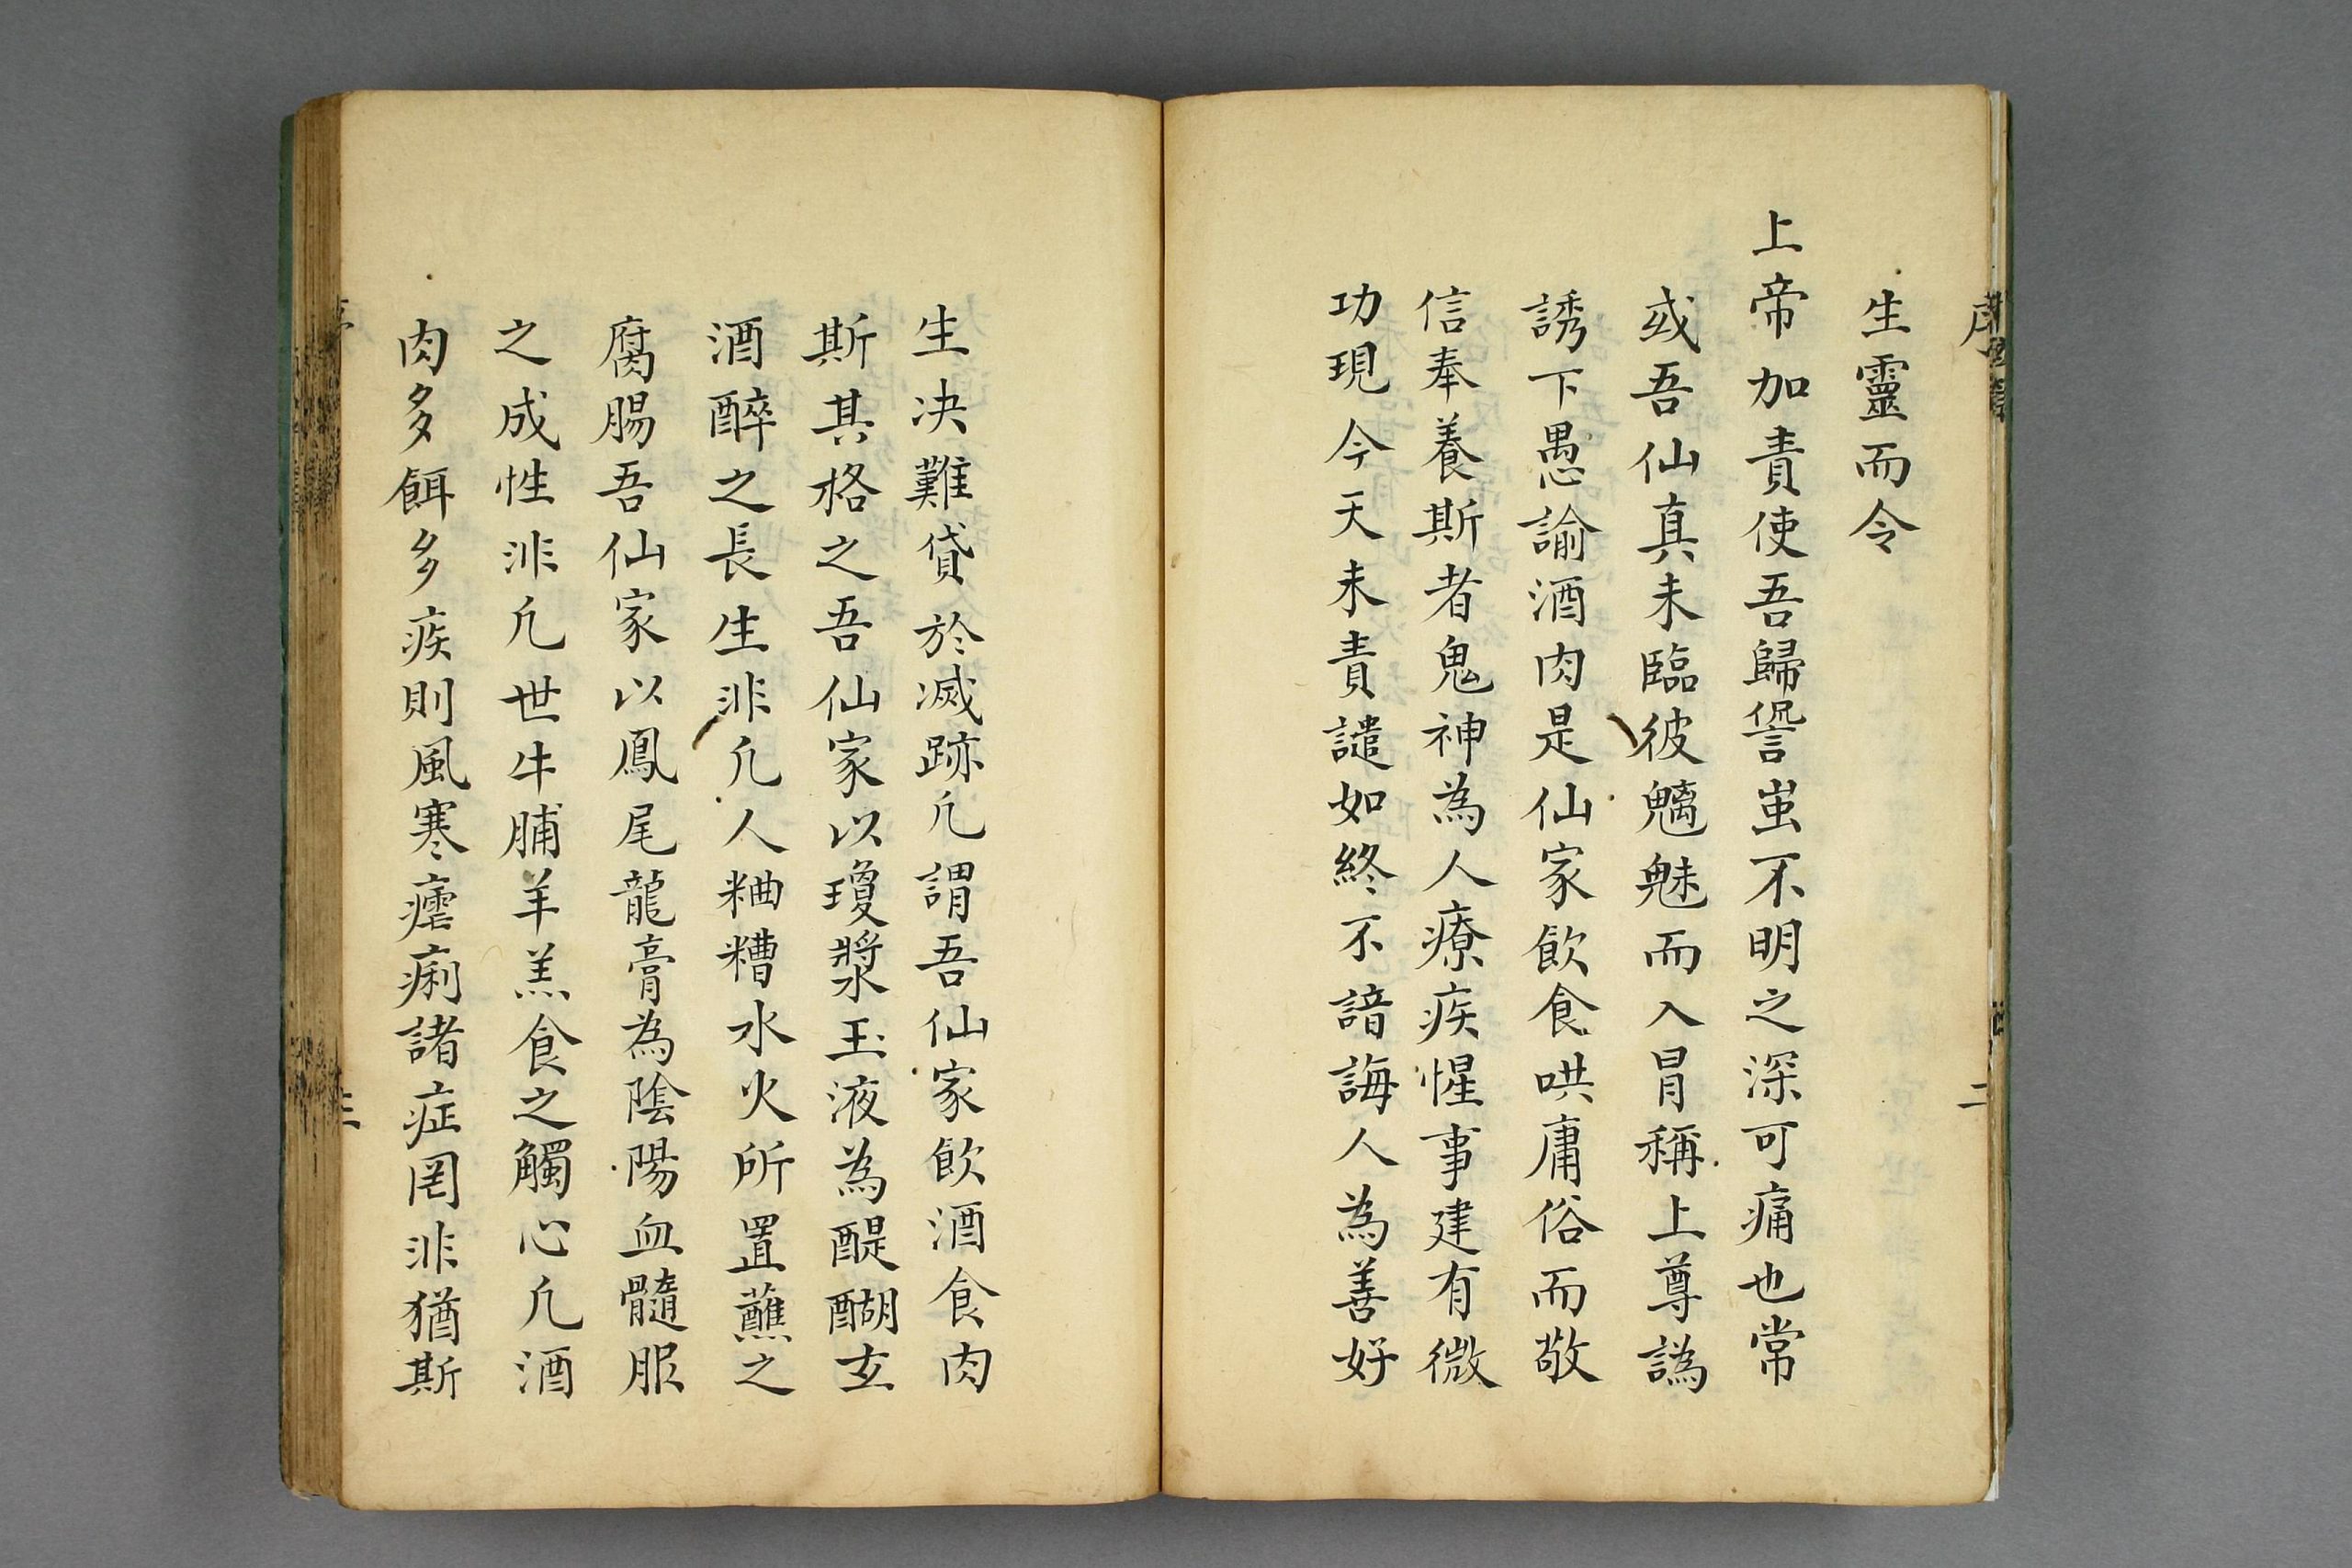 生靈而令
上帝加責使吾歸譽蚩不明之深可痛也常
或吾仙真未臨彼魑魅而入冒稱上尊譌
誘下愚諭酒肉是仙家飲食哄庸俗而敬
信奉養斯者鬼神為人療疾惺事建有微
功現今天未責譴如終不諳誨人為善好
生决難貸於滅跡凢謂吾仙家飲酒食肉
斯其格之吾仙家以瓊漿玉液為醍醐玄
酒醉之長生非凢人粬糟水火所置蘸之
腐腸吾仙家以鳳尾龍膏為陰陽血髓服
之成性非凢世牛脯羊羔食之觸心凢酒
肉多餌多疾則風寒瘧痢諸症罔非猶斯